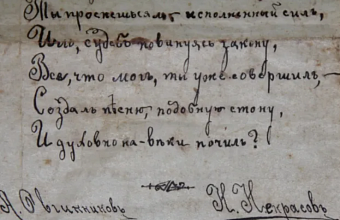 Ты проснешься ль исполненный силъ,
Иль, судебъ повинуясь закону,
Все, что могъ, ты уже совершилъ, —
Создалъ пѣсню, подобную стону,
И духовно на-вѣки почилъ?
А. Овчинниковъ Н. Некрасовъ